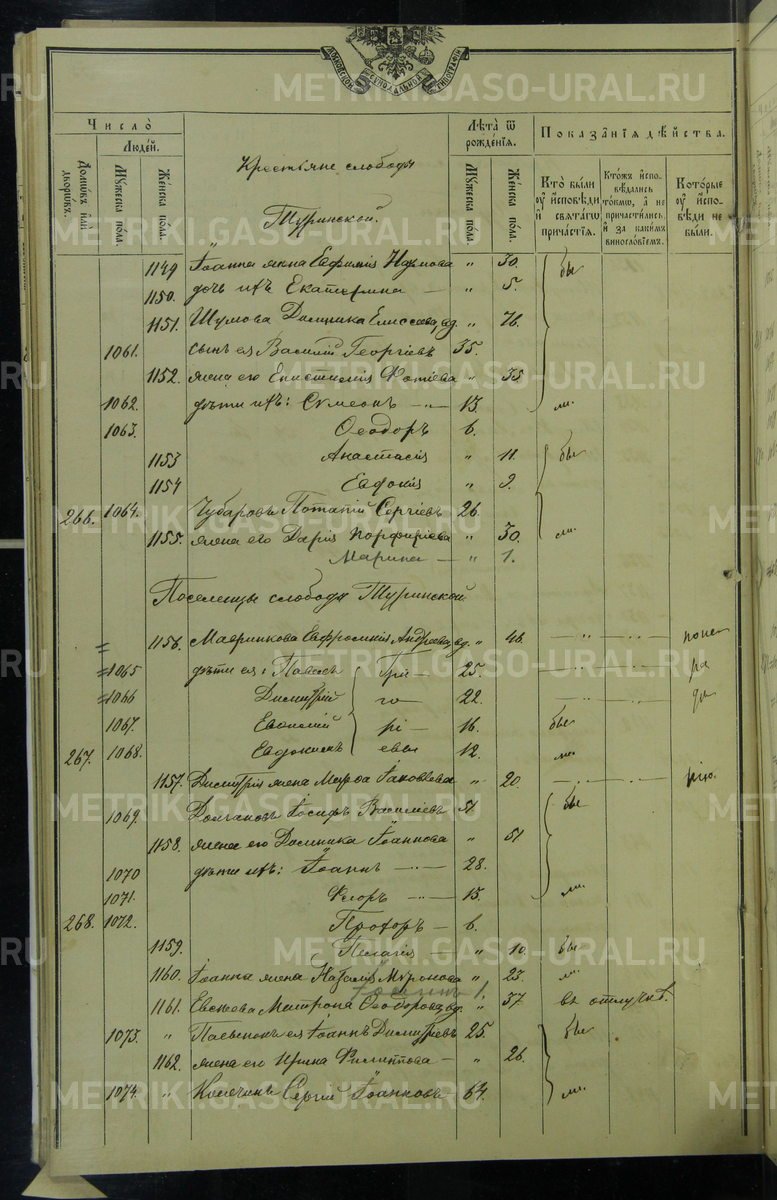 МОСКОВСКОЙ СѴНОДАЛЬНОЙ ТИПОГРАФІИ
Число̀
Людей.
Домѡвъ или дворѡвъ.
Мꙋжеска пола.
Женска пола.
Крестьяне слободы
Туринской.
Лѣта ѿ рожденїѧ.
Мꙋжеска пола.
Женска пола.
Показанїѧ дѣйства.
Кто были оу исповѣди и свѧтагѡ причастїѧ.
Ктожъ исповѣдались токмѡ, а не причастились, и за какимъ винословїемъ.
Которые оу исповѣди не были.
1149 Іоанна жена Евфимія Наумова " 30. бы
1150. дочь ихъ Екатерина — " 5.
1151. Шумова Домника Елиссеева, вд. " 76.
1061. сынъ ея Василій Георгіевъ 35.
1152. жена его Епистимія Фотіева " 35
1062. дѣти ихъ: Сѵмеонъ — 13. ли.
1063. Ѳеодоръ 6.
1153 Анастасія " 11. бы
1154 Евдокія " 9.
266. 1064. Чубаровъ Потапій Сергіевъ 26.
1155. жена его Дарія Порфиріева " 30. ли.
Марина — " 1.
Поселенцы слободы Туринской
1156. Евфросинія Андреева, вд. " 46. — " — — поне
1065 дѣти ея: Павелъ Гри — 25. — " — — ра
1066 Димитрій го — 22. — " — — ди
1067. Евѳимій рі — 16. бы
267. 1068. Евдокимъ евы 12. ли
1157. Димитрія жена Марѳа Іаковлева " 20 — — — нію.
1069. Долгановъ Іосифъ Василіевъ 51 бы
1158. жена его Домника Іоаннова " 51
1070 дѣти ихъ: Іоаннъ — 28.
1071. Флоръ — 15. ли.
268. 1072. Прохоръ — 6.
1159. Пелагія — " 10. бы
1160. Іоанна жена Наталія Миронова " 23. ли.
1.
1161. Матрона Ѳеодорова, вд. " 57 въ отлучкѣ.
1073. " Пасынокъ ея Іоаннъ Димитріевъ 25. бы
1162. жена его Ирина Филиппова — " 26.
1074. " Сергій Іоанновъ 64. ли.
METRIKI.GASO-URAL.RU